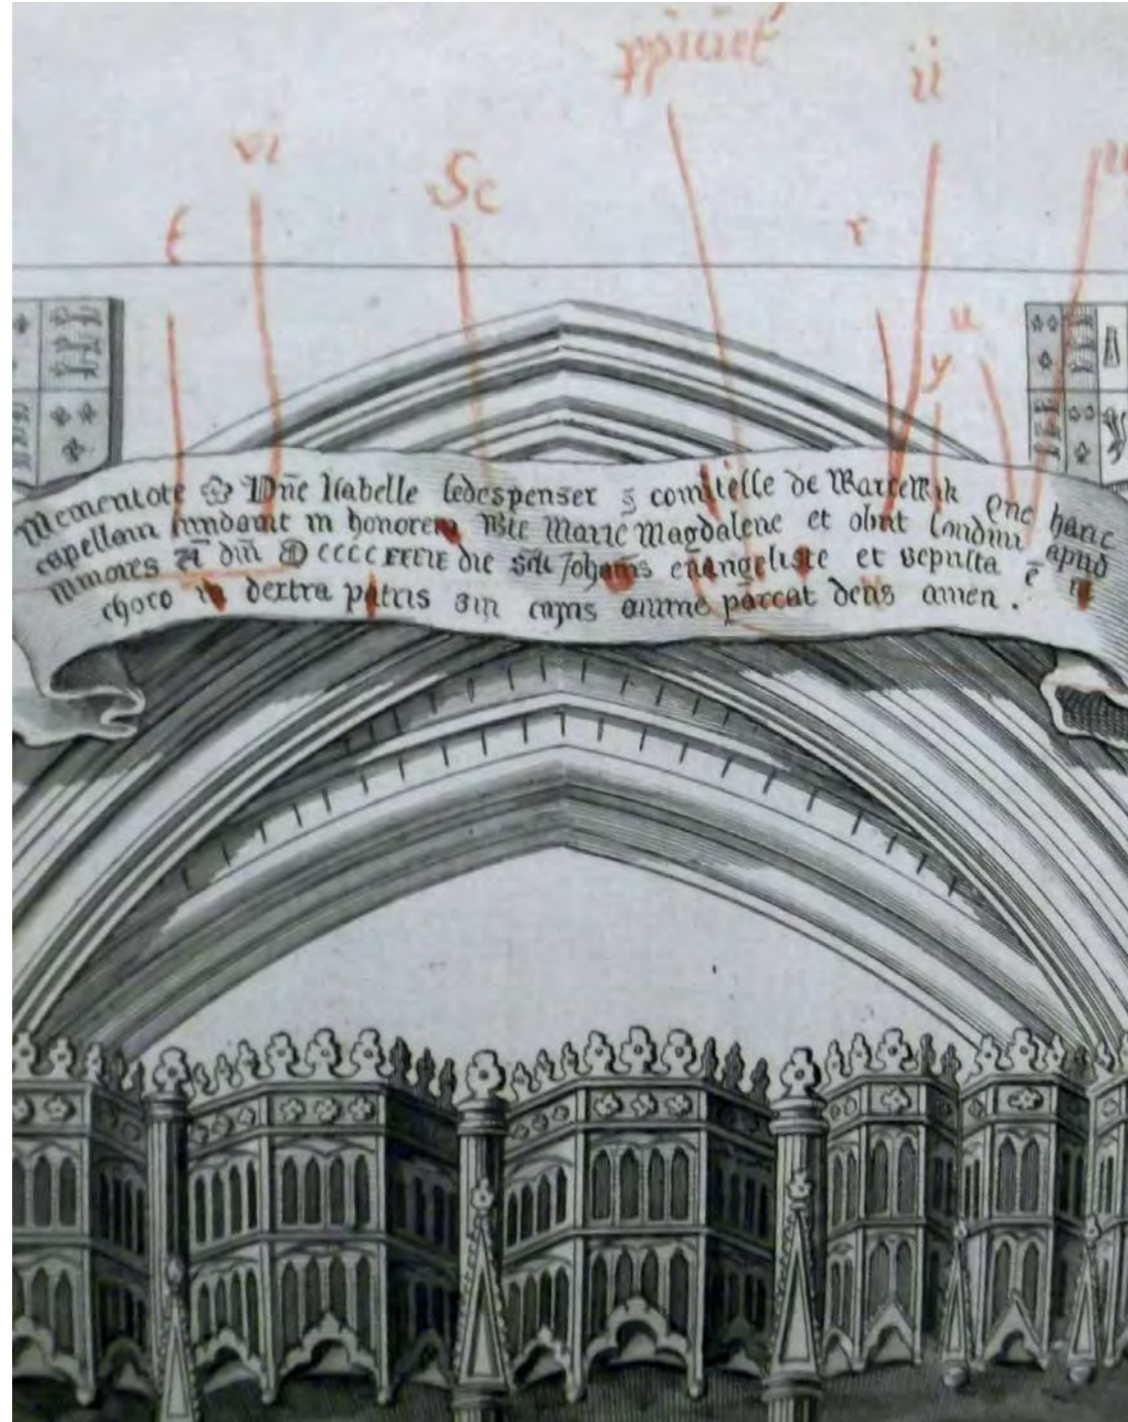 ppiciet'
ii
vi
Sc
t
r
u
y
Mementote Dn̄e Isabelle ledespenser ʒ comitesse de Warrewik que hanc
capellam fundavit in honorem Bte Marie Magdalene et obiit londini apud
minores Ā dn̄i cccc die Johan̄is evangeliste et sepulta ē in
choro in dextra patris sui cujus anime parcat deus amen .